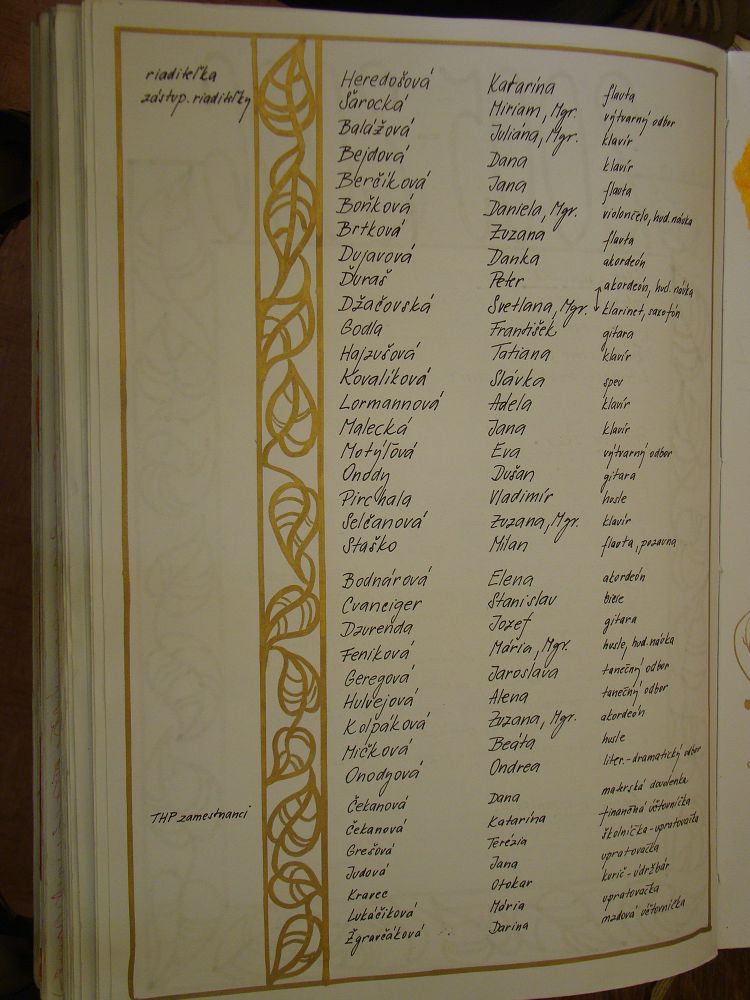 riaditeľka Heredošová Katarína flauta
zástup. riaditeľky Šarocká Miriam, Mgr. výtvarný odbor
Balážová Juliána, Mgr. klavír
Bejdová Dana klavír
Berčíková Jana flauta
Boňková Daniela, Mgr. violončelo, hud. náuka
Brtková Zuzana flauta
Dujavová Danka akordeón
Ďuraš Peter akordeón, hud. náuka
Džačovská Svetlana, Mgr. klarinet, saxofón
Godla František gitara
Hajzušová Tatiana klavír
Kovalíková Slávka spev
Lormannová Adela klavír
Malecká Jana klavír
Motýľová Eva výtvarný odbor
Onody Dušan gitara
Pirchala Vladimír husle
Selčanová Zuzana, Mgr. klavír
Staško Milan flauta, pozauna
Bodnárová Elena akordeón
Cvaneiger Stanislav bicie
Dzurenda Jozef gitara
Feníková Mária, Mgr. husle, hud. náuka
Geregová Jaroslava tanečný odbor
Hulvejová Alena tanečný odbor
Kolpáková Zuzana, Mgr. akordeón
Mičková Beáta husle
Onodyová Ondrea liter.-dramatický odbor
THP zamestnanci Čekanová Dana materská dovolenka
Čekanová Katarína finančná účtovníčka
Grešová Terézia školníčka-upratovačka
Judová Jana upratovačka
Kravec Otokar kurič-údržbár
Lukáčiková Mária upratovačka
Žgravčáková Darina mzdová účtovníčka